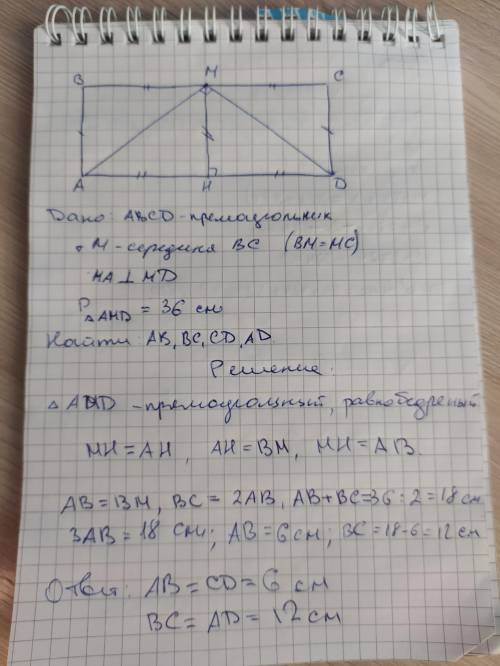 B M C
A H D
Дано: ABCD - прямоугольник
т M - середина BC (BM = MC)
MA ⊥ MD
P△AMD = 36 см
Найти: AB, BC, CD, AD
Решение.
△ AMD - прямоугольный, равнобедреный
MH = AH, AH = BM, MH = AB.
AB = BM, BC = 2AB, AB + BC = 36 : 2 = 18 см
3AB = 18 см; AB = 6 см; BC = 18 - 6 = 12 см
Ответ: AB = CD = 6 см
BC = AD = 12 см